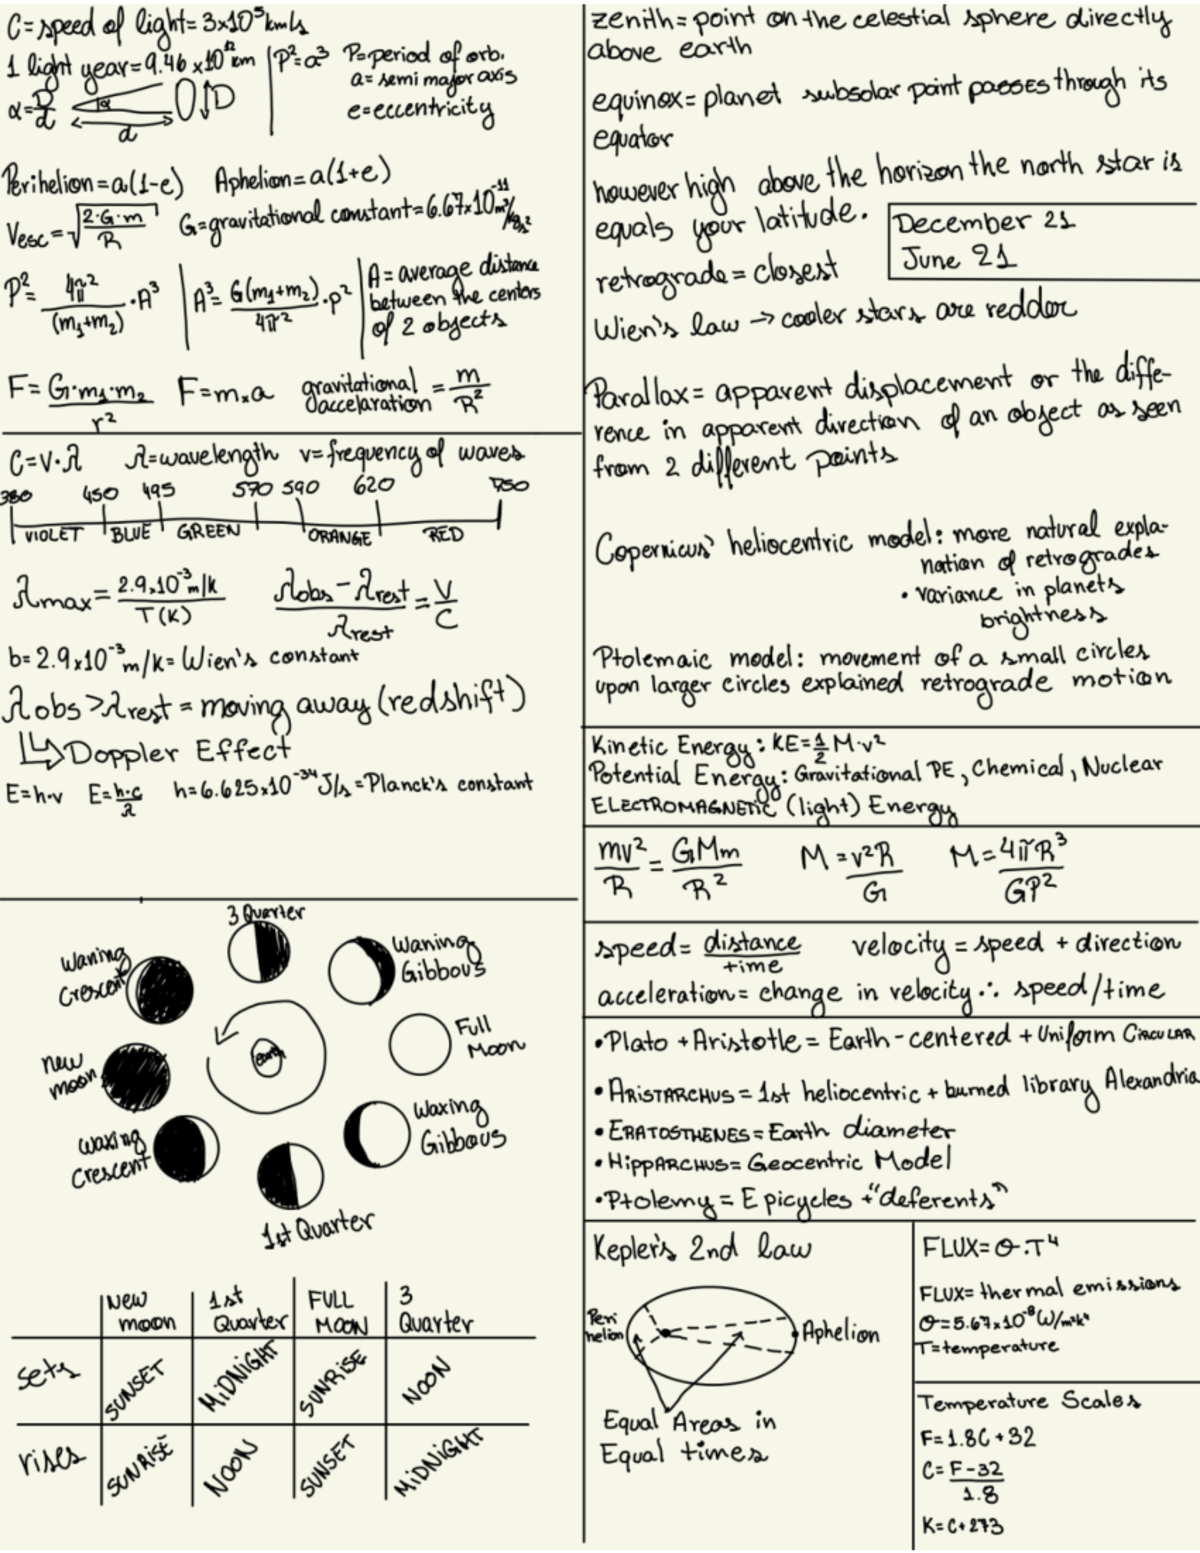 C=speed of light=3x10⁵km/s
1 light year=9.46x10¹²km
α=D/d
α
D
d
P²=a³
P=period of orb.
a=semi major axis
e=eccentricity
Perihelion=a(1-e) Aphelion=a(1+e)
Vesc=√(2·G·m/R) G=gravitational constant=6.67x10⁻¹¹m³/kg s²
P²=4π²/(m₁+m₂)·A³
A³=G(m₁+m₂)/4π²·p²
A=average distance
between the centers
of 2 objects
F=G·m₁·m₂/r² F=mxa gravitational accelaration=m/R²
C=V·λ λ=wavelength v=frequency of waves
380 450 495 570 590 620 750
VIOLET BLUE GREEN ORANGE RED
λmax=2.9x10⁻³m/k/T(K) λobs-λrest/λrest=V/C
b=2.9x10⁻³m/k=Wien's constant
λobs>λrest=moving away(redshift)
↳Doppler Effect
E=h·v E=h·c/λ h=6.625x10⁻³⁴J/s=Planck's constant
3 Quarter
Waning
Gibbous
Full
Moon
Waxing
Gibbous
1st Quarter
Waxing
Crescent
new
moon
Waning
Crescent
earth
New moon 1st Quarter FULL MOON 3 Quarter
sets SUNSET MiDNiGHT SUNRiSE NOON
rises SUNRiSE NOON SUNSET MiDNiGHT
zenith=point on the celestial sphere directly
above earth
equinox=planet subsolar point passes through its
equator
however high above the horizon the north star is
equals your latitude.
December 21
June 21
retrograde=closest
Wien's law → cooler stars are redder
Parallax=apparent displacement or the diffe-
rence in apparent direction of an object as seen
from 2 different points
Copernicus' heliocentric model: more natural expla-
nation of retrogrades
• variance in planets
brightness
Ptolemaic model: movement of a small circles
upon larger circles explained retrograde motion
Kinetic Energy: KE=½M·v²
Potential Energy: Gravitational PE, Chemical, Nuclear
ELECTROMAGNETIC (light) Energy
mv²/R=GMm/R² M=v²R/G M=4πR³/GP²
speed=distance/time velocity=speed+direction
acceleration=change in velocity∴ speed/time
•Plato+Aristotle=Earth-centered+Uniform CIRCULAR
•ARISTARCHUS=1st heliocentric+burned library Alexandria
•ERATOSTHENES=Earth diameter
•HippARCHUS=Geocentric Model
•Ptolemy=Epicycles+"deferents"
Kepler's 2nd law
Peri
helion
Aphelion
Equal Areas in
Equal times
FLUX=σ·T⁴
FLUX=thermal emissions
σ=5.67x10⁻⁸W/m²k⁴
T=temperature
Temperature Scales
F=1.8C+32
C=F-32/1.8
K=C+273